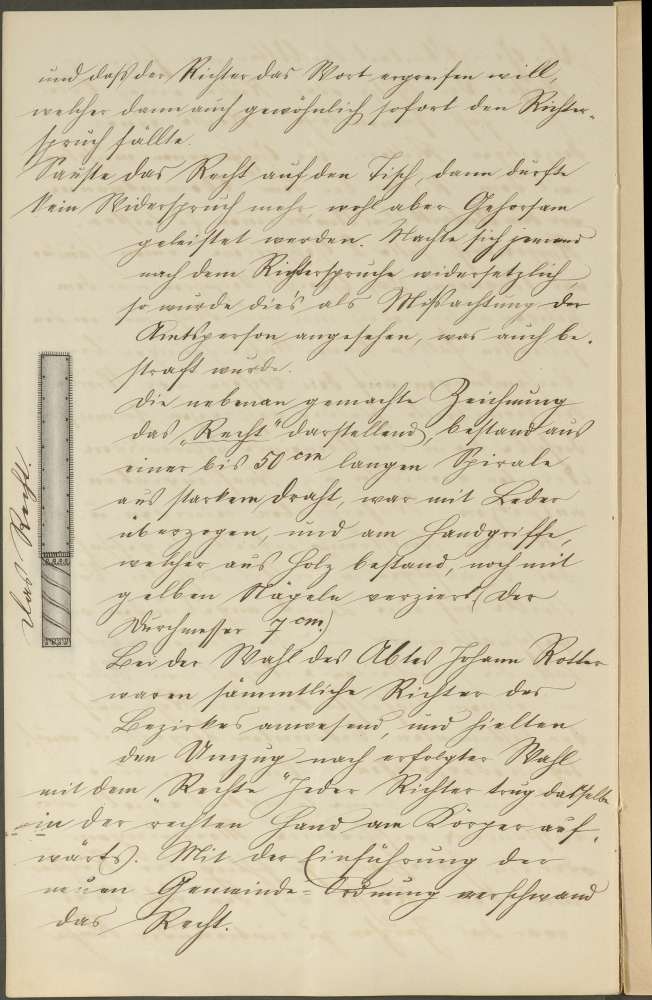 und daß der Richter das Wort ergreifen will,
welcher dann auch gewöhnlich sofort den Richter-
spruch fällte.
Sauste das Recht auf den Tisch, dann durfte
kein Widerspruch mehr, wohl aber Gehorsam
geleistet werden. Machte sich jemand
nach dem Richterspruche widersetzlich,
so wurde dies als Mißachtung der
Amtsperson angesehen, was auch be-
straft wurde.
Die nebenan gemachte Zeichnung
das „Recht" darstellend, bestand aus
einer bis 50 cm langen Spirale
aus starkem Draht, war mit Leder
überzogen, und am Handgriffe,
welcher aus Holz bestand, noch mit
gelben Nägeln verziert (Der
Durchmesser 7 cm.)
Das Recht.
Bei der Wahl des Abtes Johann Rotter
waren sämmtliche Richter des
Bezirkes anwesend, und hielten
den Umzug nach erfolgter Wahl
mit dem „Rechte" Jeder Richter trug dasselbe
in der rechten Hand am Körper auf-
wärts. Mit der Einführung der
neuen Gemeinde-Ordnung verschwand
das Recht.